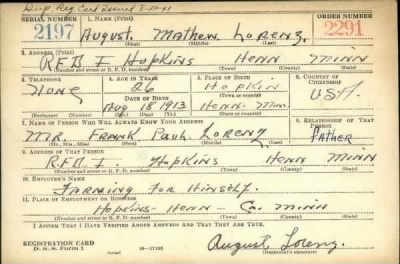 Dup. Reg Card Issued 8-20-41
SERIAL NUMBER 1. NAME (Print) ORDER NUMBER
2197 August. Mathew. Lorenz. 2291
(First) (Middle) (Last)
2. ADDRESS (Print)
R.F.D 1. Hopkins Henn Minn
(Number and street or R. F. D. number) (Town) (County) (State)
3. TELEPHONE 4. AGE IN YEARS 5. PLACE OF BIRTH 6. COUNTRY OF CITIZENSHIP
None 26 Hopkin
DATE OF BIRTH (Town or county) USA.
Aug 18 1913 Henn. Minn.
(Exchange) (Number) (Mo.) (Day) (Yr.) (State or country)
7. NAME OF PERSON WHO WILL ALWAYS KNOW YOUR ADDRESS 8. RELATIONSHIP OF THAT PERSON
Mr. Frank Paul. Lorenz Father
(Mr., Mrs., Miss) (First) (Middle) (Last)
9. ADDRESS OF THAT PERSON
R.F.D 1. Hopkins Henn Minn
(Number and street or R. F. D. number) (Town) (County) (State)
10. EMPLOYER'S NAME
Farming for Himself.
11. PLACE OF EMPLOYMENT OR BUSINESS
Hopkins- Henn- Co. Minn
(Number and street or R. F. D. number) (Town) (County) (State)
I AFFIRM THAT I HAVE VERIFIED ABOVE ANSWERS AND THAT THEY ARE TRUE.
REGISTRATION CARD
D. S. S. Form 1 (over) 16—17105 August Lorenz.
(Registrant's signature)